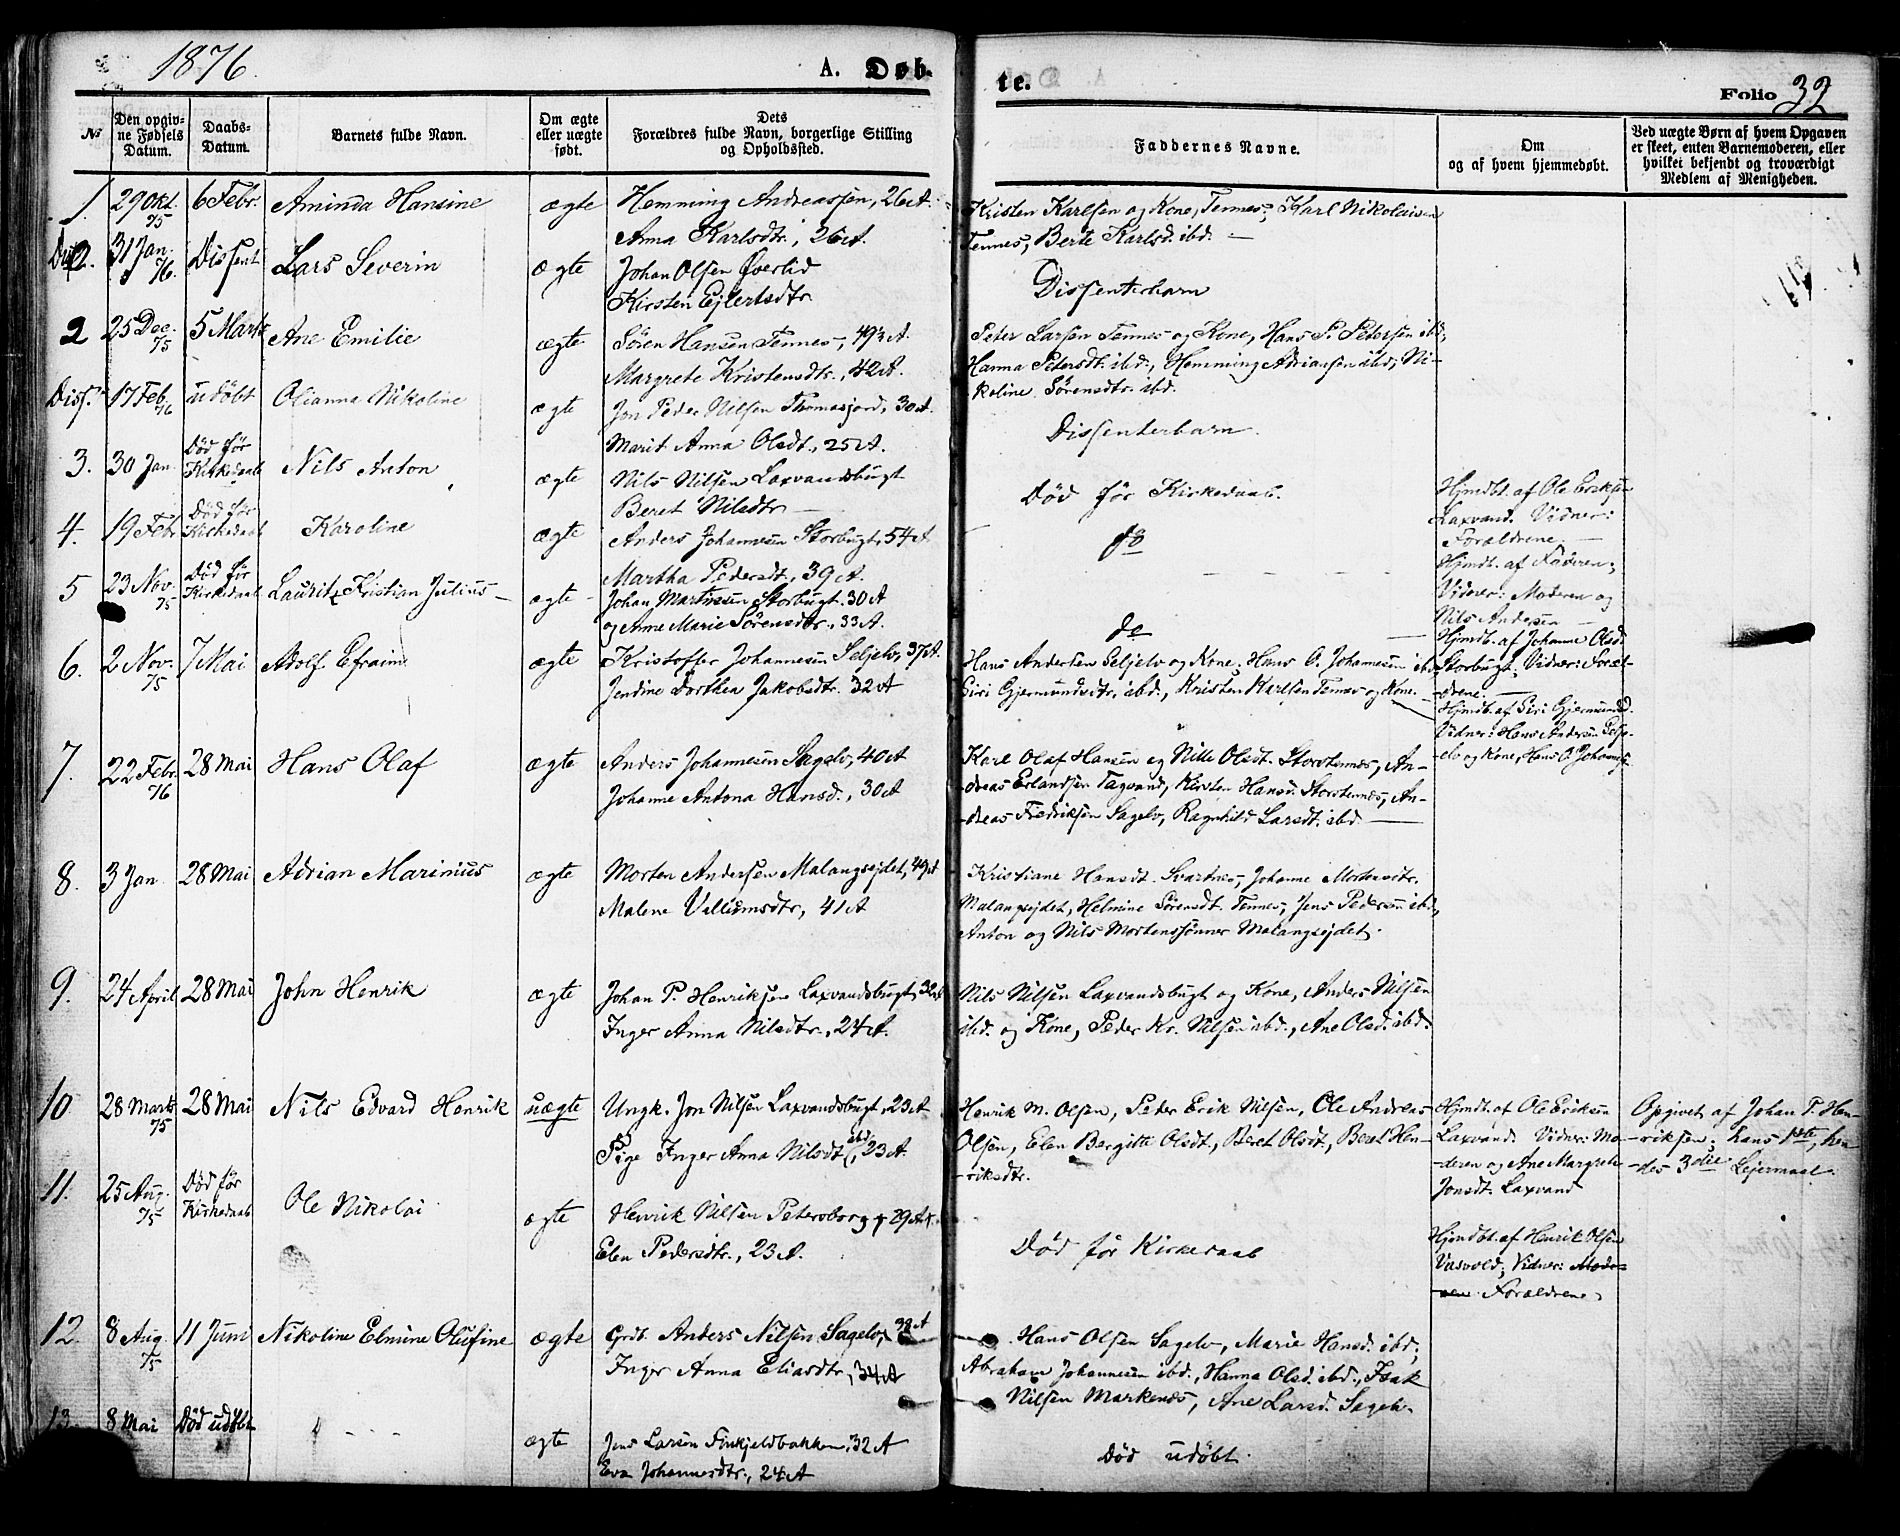 1876.
A. Døb-
te.
Folio 32
№
Den opgiv-
ne Fødsels
Datum.
Daabs-
Datum.
Barnets fulde Navn.
Om ægte
eller uægte
født.
Dets
Forældres fulde Navn, borgerlige Stilling
og Opholdssted.
Faddernes Navne.
Om
og af hvem hjemmedøbt.
Ved uægte Børn af hvem Opgaven
er skeet, enten Barnemoderen, eller
hvilket bekjendt og troværdigt
Medlem af Menigheden.
1. 29 Okt. 75 6 Febr. Aminda Hansine ægte Hemming Andreassen, 26 A.
Anna Karlsdtr., 26 A.
Kristen Karlsen og Kone, Tennes; Karl Nikolaisen
Tennes, Berte Karlsd. ibd. —
31 Jan. 76. Dissent Lars Severin ægte Johan Olsen Øverlid
Kirsten Ejlertsdtr.
Dissenterbarn
2 25 Dec. 75 5 Marts Ane Emilie ægte Sören Hansen Tennes, 49½ A.
Margrete Kristensdtr., 42 A.
Peter Larsen Tennes og Kone, Hans P. Petersen ibd.,
Hanna Petersdt. ibd., Hemming Adriansen ibd., Ni-
koline Sörensdtr. ibd.
Diss. 17 Feb. 76 udøbt Olianna Nikoline ægte Jon Peder Nilsen Thomasjord, 30 A.
Marit Anna Olsdt., 25 A.
Dissenterbarn.
3. 30 Jan. Død før
Kirkedaab Nils Anton ægte Nils Nilsen Laxvandsbugt
Beret Nilsdtr. —
Død før Kirkedaab.
Hjmdbt. af Ole Eriksen
Laxvand. Vidner:
Forældrene. —
4. 19 Febr. Død før
Kirkedaab Karoline ægte Anders Johannesen Storbugt, 54 A.
Martha Pedersdt., 39 A.
do
Hjmdt. af Faderen;
Vidner: Moderen og
Nils Andersen —
5 23 Nov. 75 Død før
Kirkedaab Lauritz Kristian Julius — ægte - Johan Martinsen Storbugt. 30 A
og Anne Marie Sörensdtr., 33 A.
do
Hjmdb. af Johanne Olsd.
Storbugt, Vidner: Foræl-
drene. —
6. 2 Nov. 75 7 Mai Adolf Efraim ægte Kristoffer Johannesen Seljelv, 37 A.
Jendine Dorthea Jakobsdtr. 32 A
Hans Andersen Seljelv og Kone, Hans O. Johannesen ibd.
Siri Gjermundsdtr. ibd., Kristen Karlsen Tennes og Kone. —
Hjmdb. af Siri Gjermundsd.
Vidner: Hans Andersen Selje-
elv og Kone, Hans O. Johannes.
7. 22 Febr. 76 28 Mai Hans Olaf ægte Anders Johannesen Sagelv, 40 A
Johanne Antona Hansd., 30 A
Karl Olaf Hansen og Nille Olsdt. Storstennes, An-
dreas Erlandsen Tagvand, Kirsten Hansd. Storstennes, An-
dreas Fredriksen Sagelv, Ragnhild Larsdt. ibd. —
8. 3 Jan 28 Mai Adrian Marinius ægte Morten Andersen Malangsejdet, 49 A
Malene Villumsdtr, 41 A
Kristiane Hansdt. Svartnes, Johanne Mortensdtr.
Malangsejdet, Helmine Sörensdt. Tennes, Jens Pedersen ibd.,
Anton og Nils Mortenssönner Malangsejdet.
9. 24 April 28 Mai John Henrik ægte Johan P. Henriksen Laxvandsbugt, 32 A
Inger Anna Nilsdtr., 24 A.
Nils Nilsen Laxvandsbugt og Kone, Anders Nilsen
ibd. og Kone, Peder Kr. Nilsen ibd., Ane Olsd. ibd.
10 28 Marts 75 28 Mai Nils Edvard Henrik uægte Ungk. Jon Nilsen Laxvandsbugt, 23 A
Pige Inger Anna Nilsdt. ibd., 23 A.
Henrik M. Olsen, Peder Erik Nilsen, Ole Andreas
Olsen, Elen Bergitte Olsdt., Beret Olsdt, Beret Hen-
riksdtr.
Hjmdt. af Ole Eriksen
Laxvand. Vidner: Mo-
deren og Ane Margrete
Jonsdt. Laxvand
Opgivet af Johan P. Hen-
riksen; hans 1ste, hen-
des 3die Lejermaal.
11. 25 Aug. 75 Død før
Kirkedaab Ole Nikolai ægte Henrik Nilsen Petersborg, 29 A.
Elen Pedersdtr., 23 A.
Død før Kirkedaab
Hjmdbt. af Henrik Olsen
Vasvold; Vidner: Mode-
ren Forældrene.
12. 8 Aug. 75 11 Juni Nikoline Elmine Olufine ægte Grdb. Anders Nilsen Sagelv, 39 A
Inger Anna Eliasdtr., 34 A
Hans Olsen Sagelv, Marie Hansd. ibd.,
Abraham Johannesen ibd., Hanna Olsd. ibd., Isak
Nilsen Markenes, Ane Larsd. Sagelv.
13. 8 Mai Død udøbt ægte Jens Larsen Finkjeldbakken, 32 A
Eva Johannesdtr., 24 A
Død udøbt.